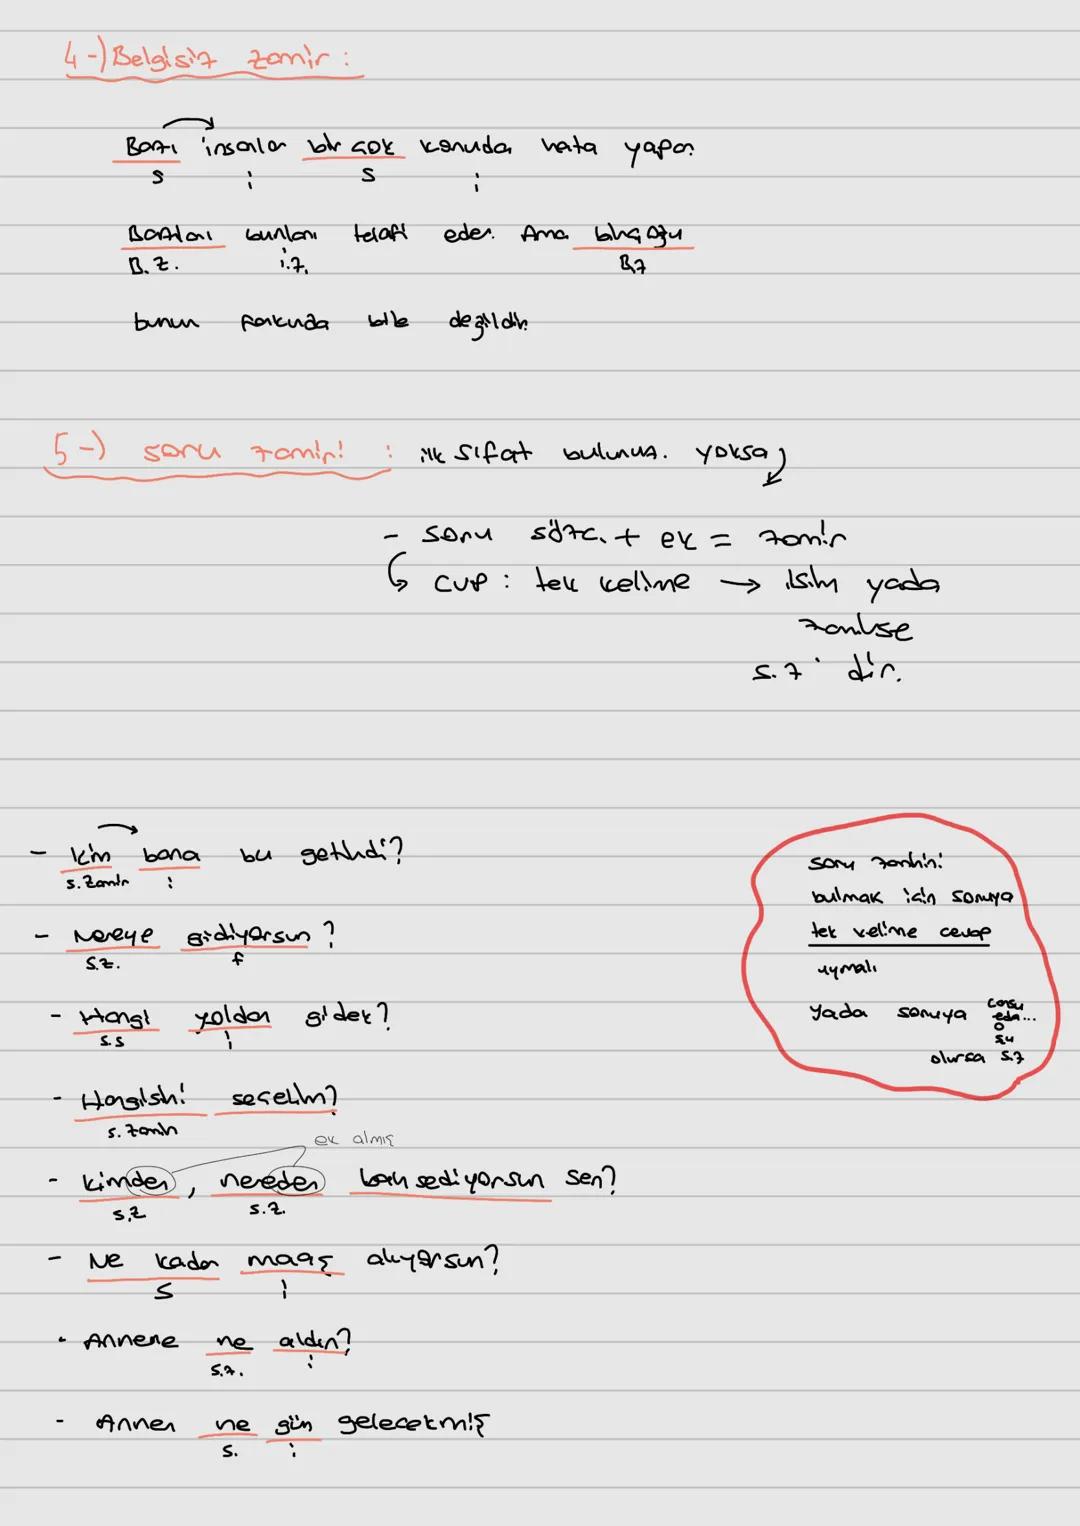 4-) Belgisiz zamir :
Bazı insanlar bir çok konuda hata yapar.
s i s i
Bazıları bunları telafi eder. Ama birçoğu
B.Z. i.z. B.z
bunun farkında bile değildir.
5-) soru zamiri : ilk sıfat bulunur. yoksa
- soru sözc. + ek = zamir
cvp : tek kelime → isim yada
zamirse
s.z dir.
- kim bana bu getirdi?
s. Zamir i
- Nereye gidiyorsun ?
s.z. f
- Hangi yoldan gidek?
s.s i
- Hangisini seçelim?
s. zamir
ek almış
- kimden, nereden bahsediyorsun sen?
s.z s.z.
- Ne kadar maaş alıyorsun?
s i
- Annene ne aldın?
s.z. i
- Annen ne gün gelecekmiş
s. i
soru zamirini
bulmak için soruya
tek kelime cevap
uymalı
yada soruya
o
şu
olursa s.z